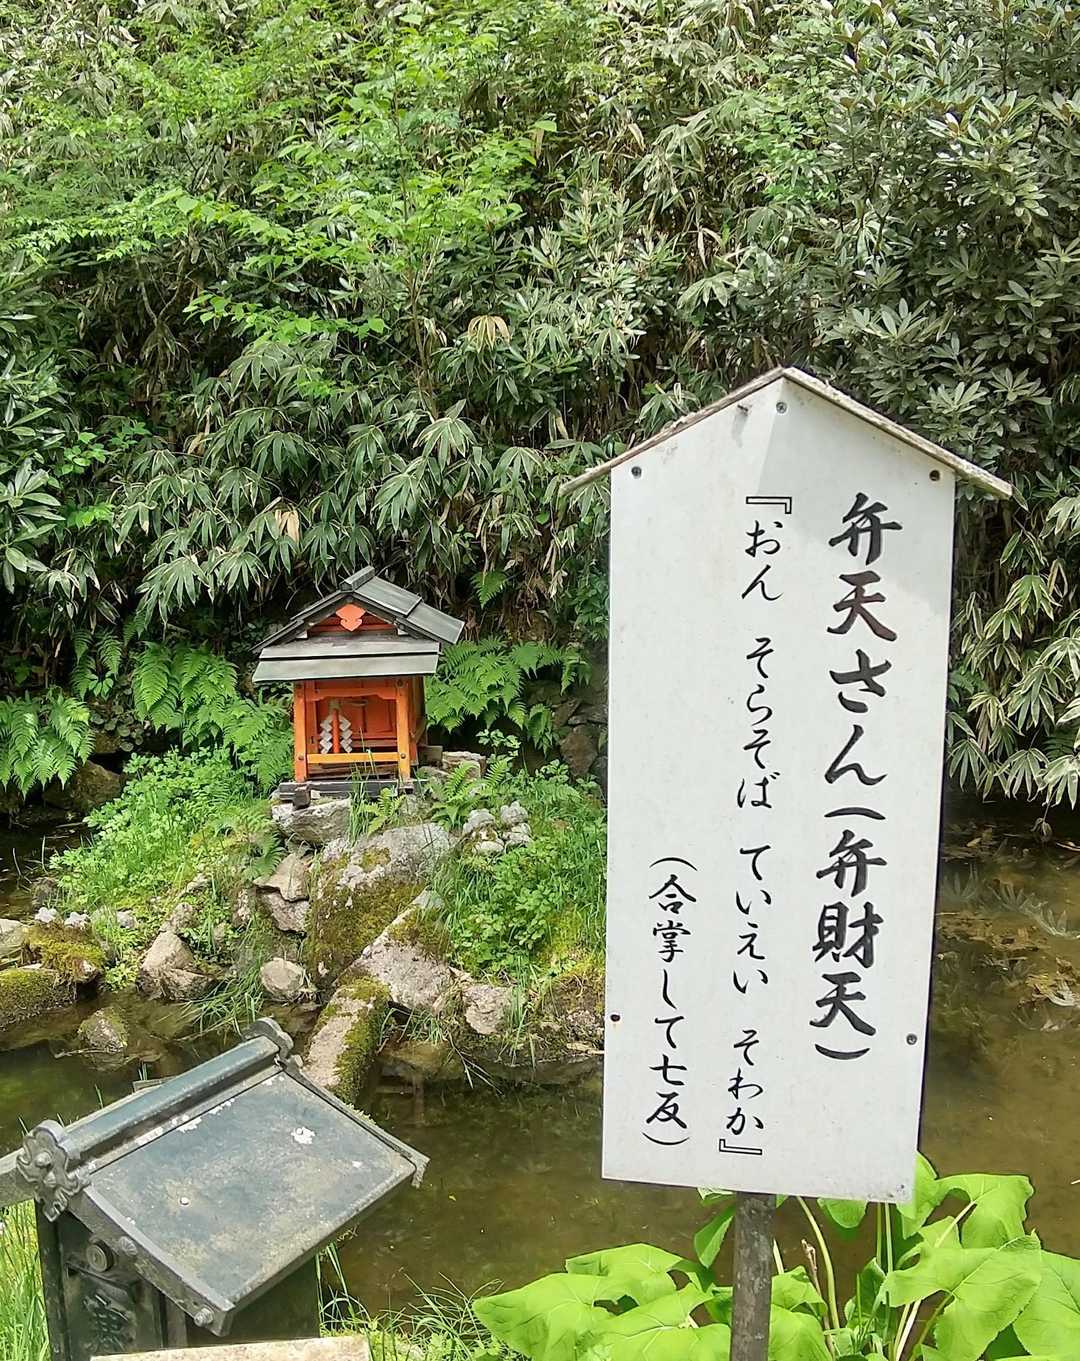 弁天さん（弁財天）
『おん そらそば ていえい そわか』
（合掌して七反）